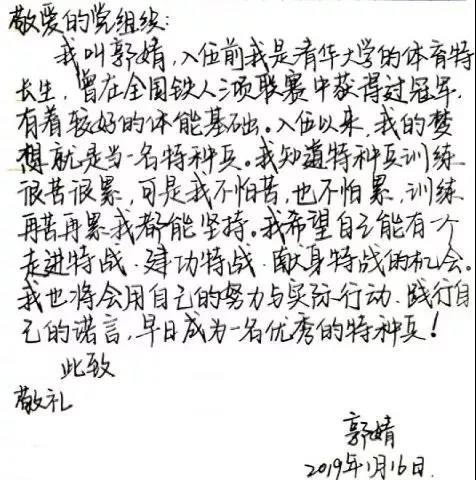 敬爱的党组织:
我叫郭婧,入伍前我是清华大学的体育特
长生,曾在全国铁人三项联赛中获得过冠军,
有着较好的体能基础。入伍以来,我的梦
想就是当一名特种兵。我知道特种兵训练
很苦很累,可是我不怕苦,也不怕累,训练
再苦再累我都能坚持。我希望自己能有一个
走进特战、建功特战、献身特战的机会。
我也将会用自己的努力与实际行动、践行自
己的诺言,早日成为一名优秀的特种兵!
此致
敬礼
郭婧
2019年1月16日.